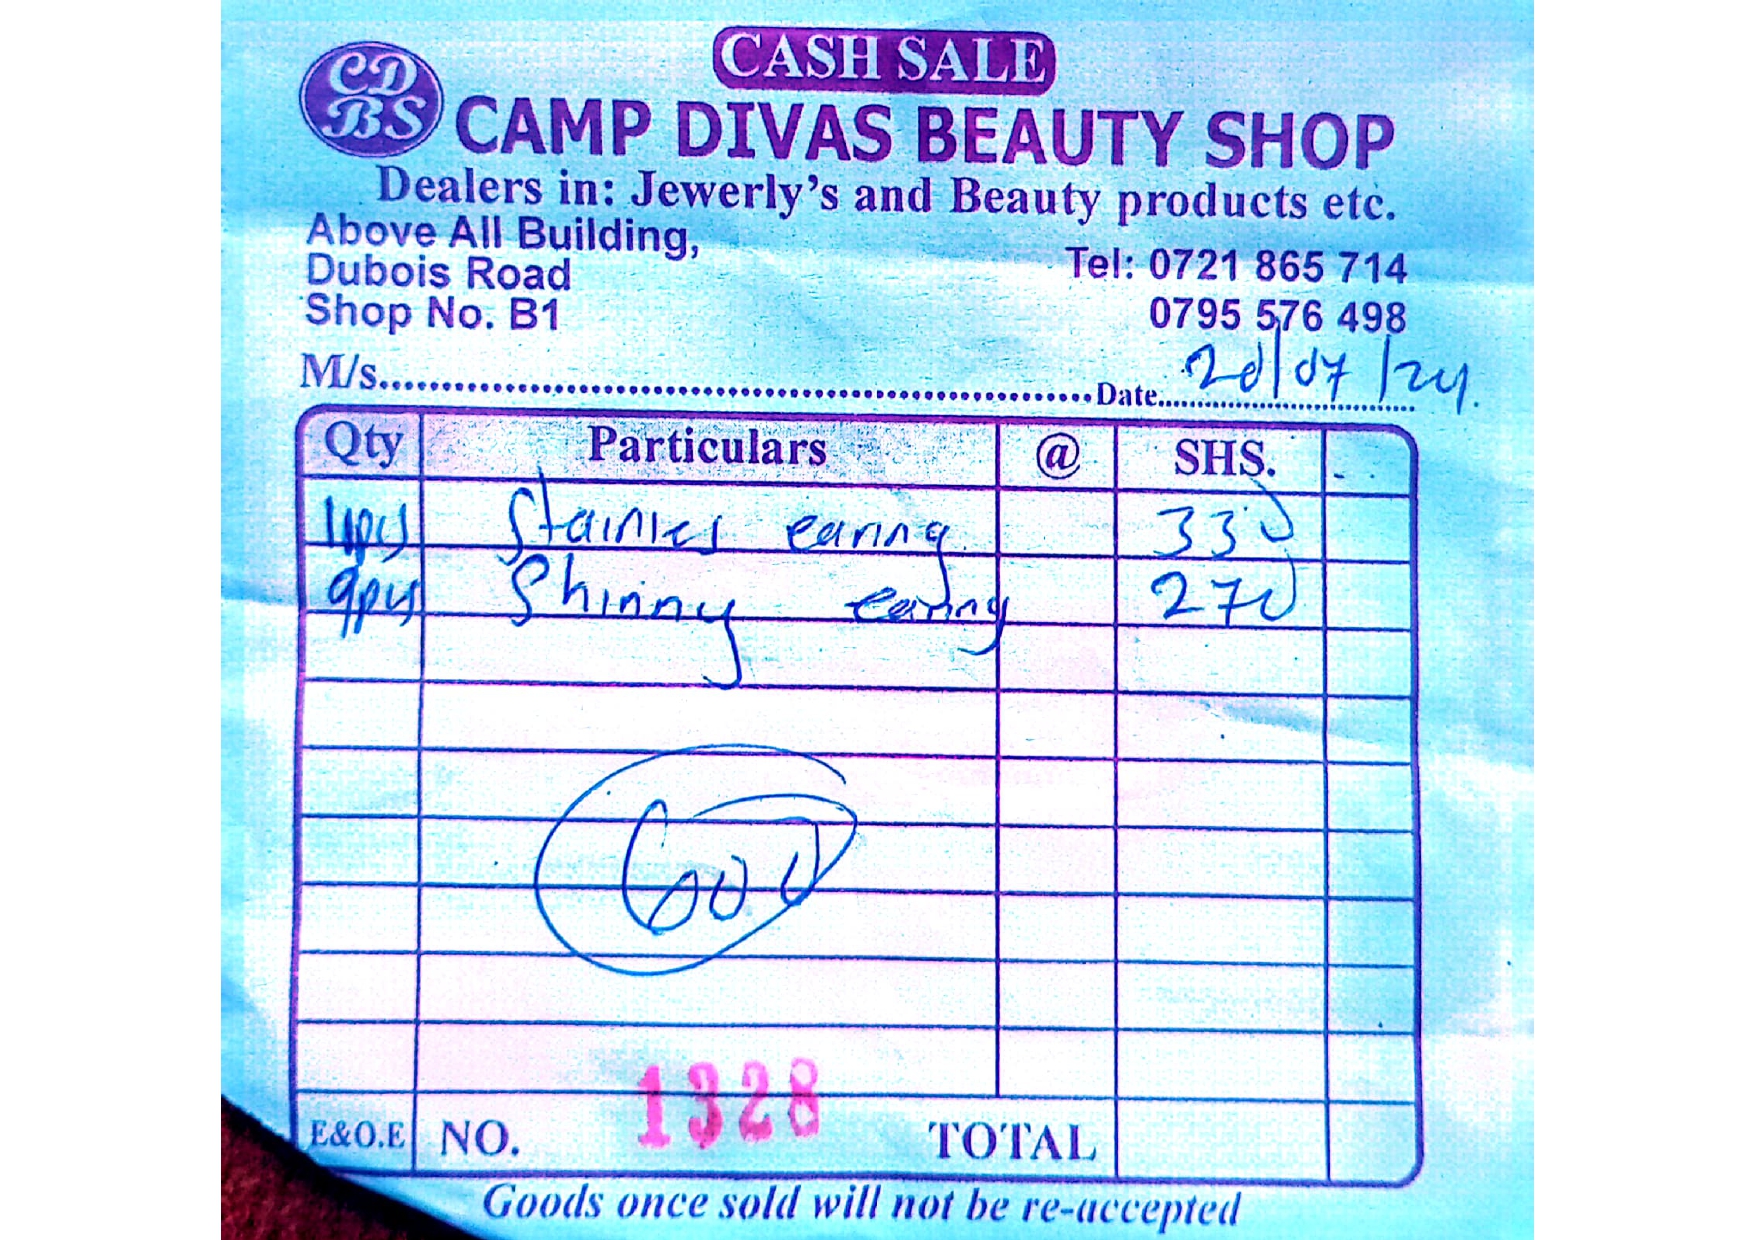 CASH SALE
CD
BS
CAMP DIVAS BEAUTY SHOP
Dealers in: Jewerly's and Beauty products etc.
Above All Building,
Dubois Road
Shop No. B1
Tel: 0721 865 714
0795 576 498
M/s.......... Date.......... 20/07/24.
Qty Particulars @ SHS.
11pcs Stainles earing 330
9pcs Shinny earing 270
600
E&O.E NO. 1328 TOTAL
Goods once sold will not be re-accepted